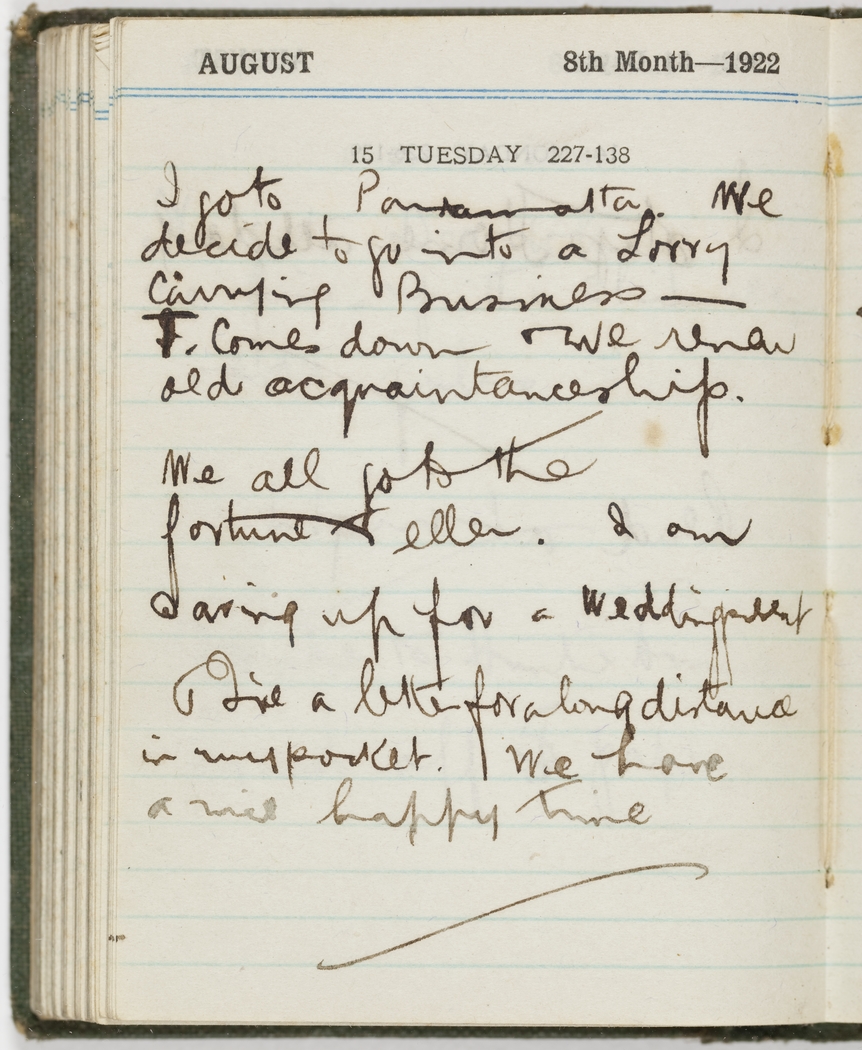 AUGUST 8th Month—1922
15 TUESDAY 227-138
I go to Parramatta. We
decide to go into a Lorry
Carrying Business —
F. Comes down We renew
old acquaintanceship.
We all go to the
fortune Teller. I am
Saving up for a Wedding
a letter for a long distance
in pocket. We have
a nice happy time